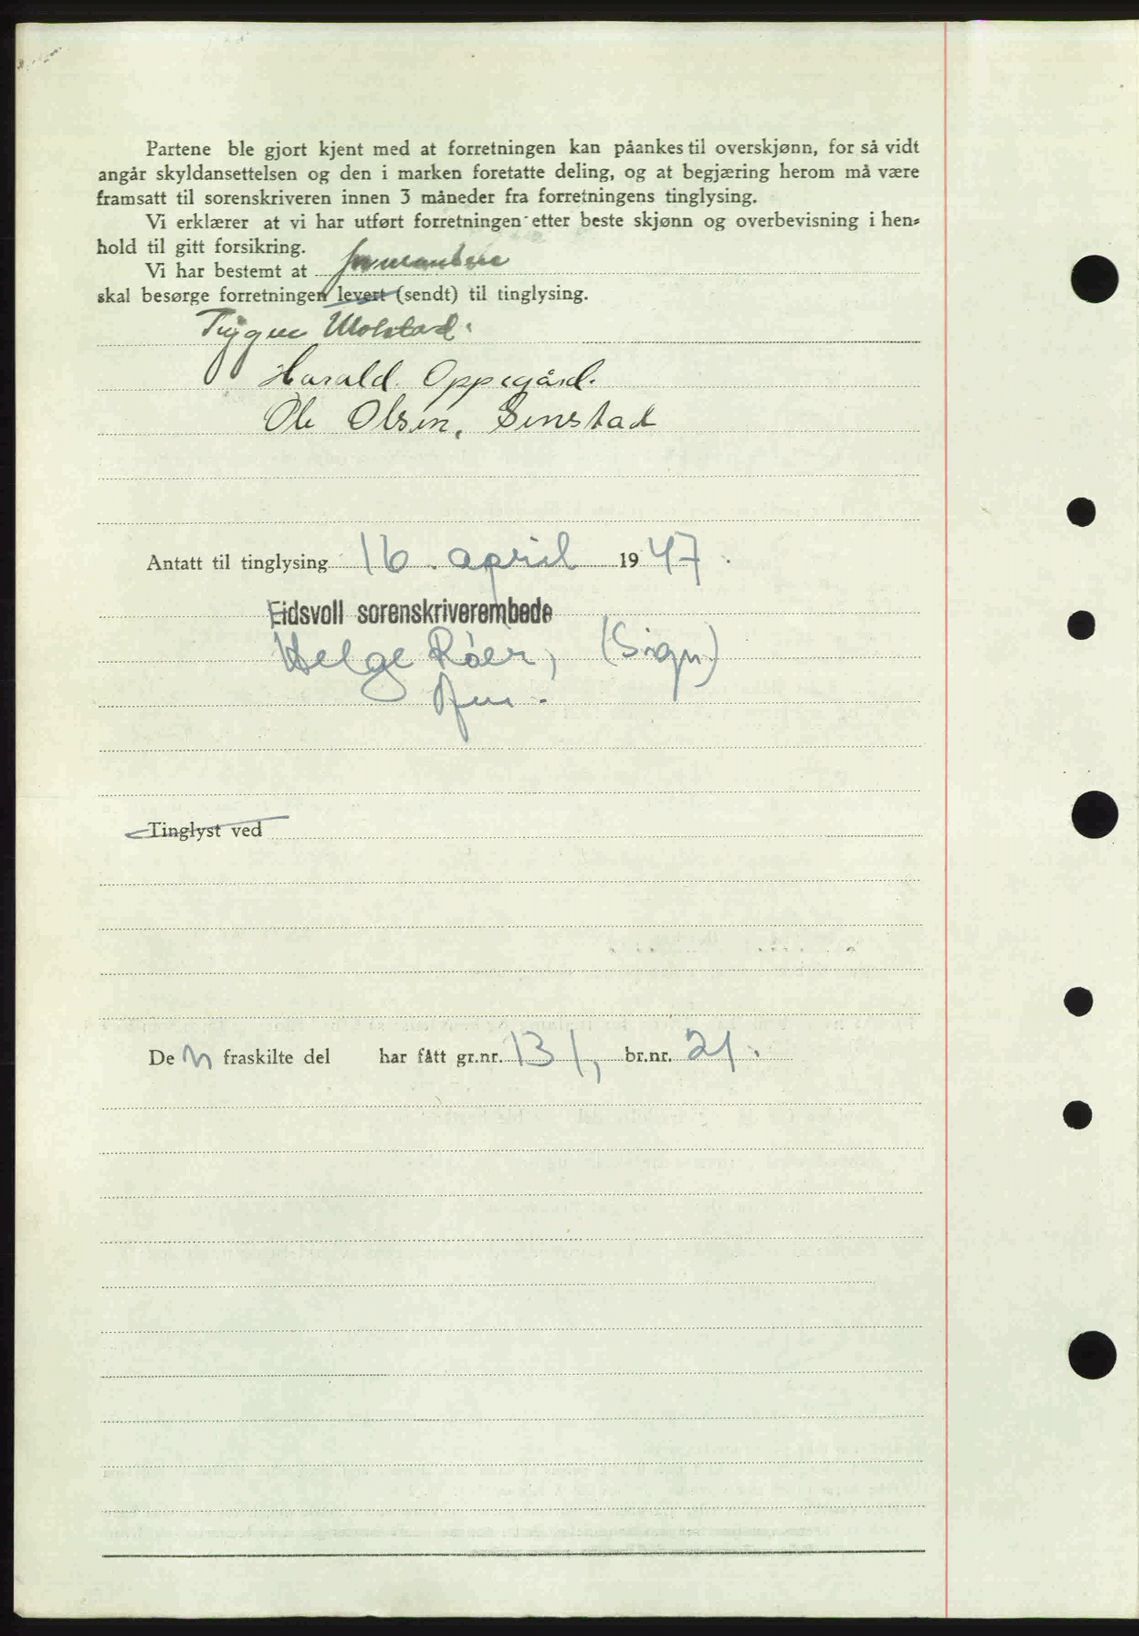 Partene ble gjort kjent med at forretningen kan påankes til overskjønn, for så vidt
angår skyldansettelsen og den i marken foretatte deling, og at begjæring herom må være
framsatt til sorenskriveren innen 3 måneder fra forretningens tinglysing.
Vi erklærer at vi har utført forretningen etter beste skjønn og overbevisning i hen-
hold til gitt forsikring.
Vi har bestemt at
skal besørge forretningen levert (sendt) til tinglysing.
Trygve Molstad.
Harald Oppegård.
Ole Olsen, Senstad
Antatt til tinglysing 16. april 1947.
Eidsvoll sorenskriverembede
Helge Røer, (Sign)
Tinglyst ved
Den fraskilte del har fått gr.nr. 131, br.nr. 21.